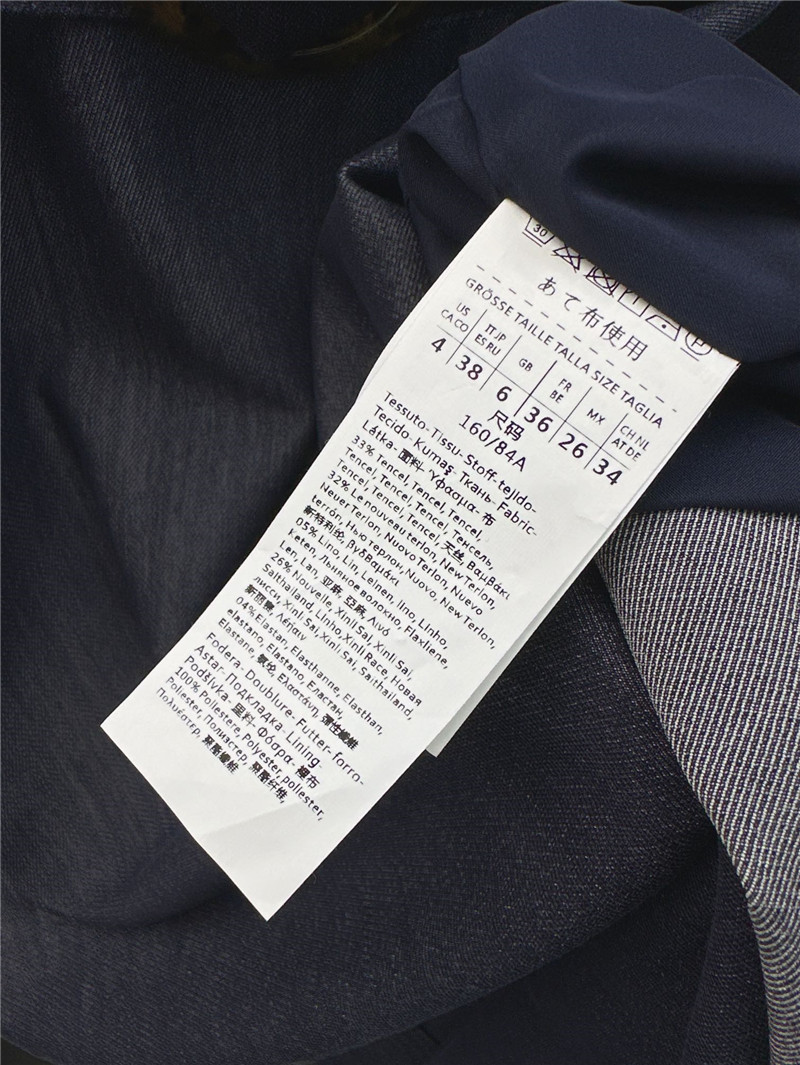 30
P
あて布使用
GRÖSSE TAILLE TALLA SIZE TAGLIA
US CA CO IT JP ES RU GB FR BE MX CH NL AT DE
4 38 6 36 26 34
尺码
160/84A
Tessuto-Tissu-Stoff-tejldo-
Tecido-Kumaş-Ткань-Fabric-
Látka-面料-Υφασμα-布
33% Tencel, Tencel, Tencel,
Tencel, Tencel, Tencel, Тенсель,
Tencel, Tencel, Tencel, 天丝, Βαμβάκι
32% Le nouveau terlon, New Terlon,
Neuer Terlon, Nuovo Terlon, Nuevo
terrón, Нью терлон, Nuovo, New Terlon,
新特利纶, βγδΒαμάκι
05% Lino, Lin, Leinen, lino, Linho,
Keten, Льняное волокно, Flaxilene,
Len, Lan, 亚麻, 亞麻, Λινό
26% Nouvelle, Xinli Sai, Xinli Sai,
Saithailand, Linho, Xinli Race, Новая
лисси, Xinli Sai, Xinli Sai, Saithailand,
新丽赛, Λέπαιν
04% Elastan, Elasthanne, Elasthan,
elastano, Elastano, Еластан,
Elastane, 氨纶, Ελαστάνη, 彈性纖維
Fodera-Doublure-Futter-forro-
Astar-Подкладка-Lining-
Podšívka-里料-Φόδρα-裡布
100% Poliestere, Polyester, poliester,
Poliester, Полиэстер, 聚酯纤维,
Πολυέστερ, 聚酯纖維